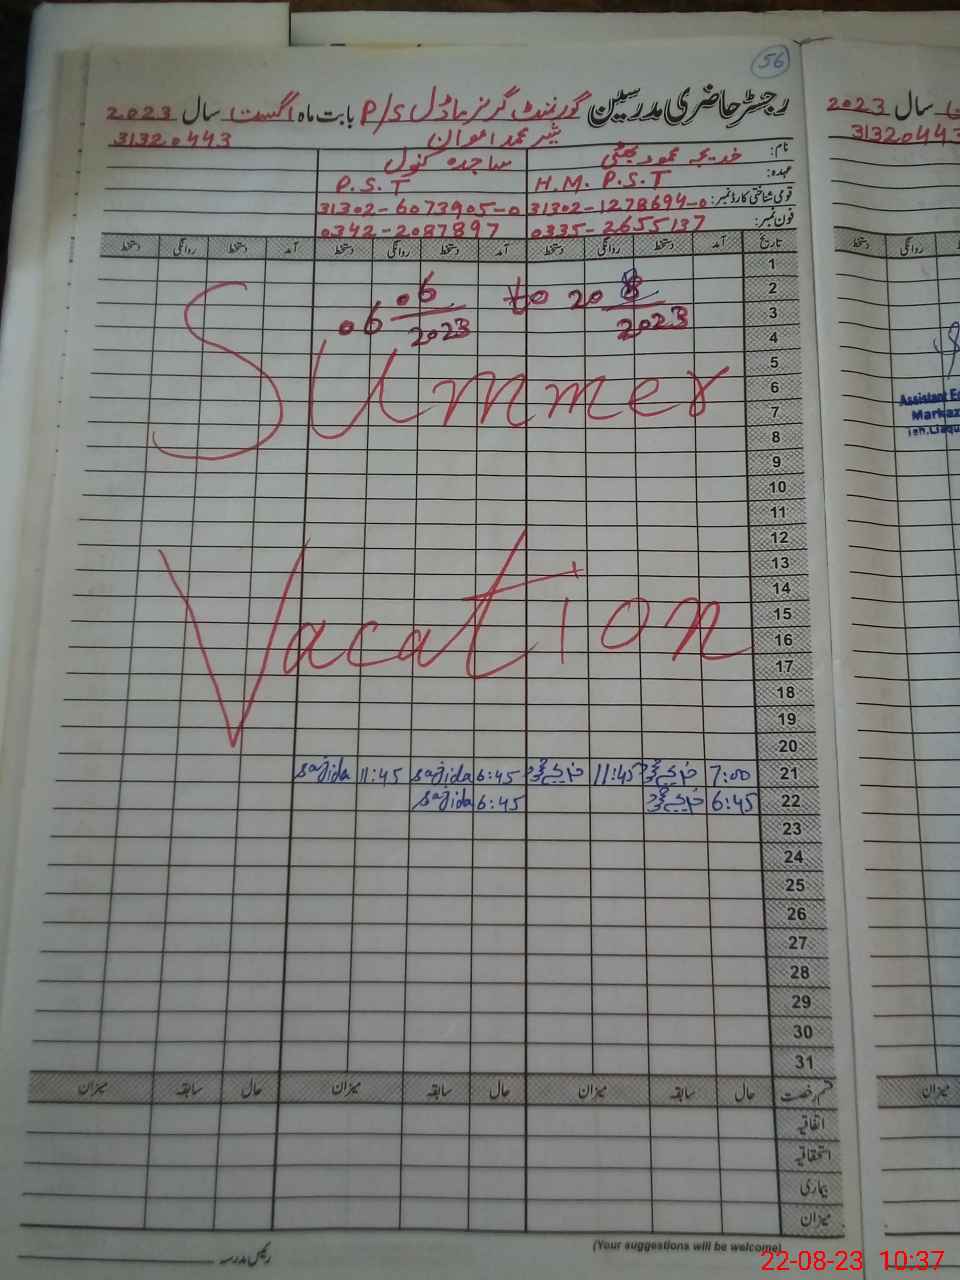 56
رجسٹر حاضری مدرسین گورنمنٹ گرلز ماڈل P/S بابت ماہ اگست سال 2023
شیر محمد اعوان 31320443
نام: خدیجہ محمود بھٹی ساجدہ کنول
عہدہ: H.M. P.S.T P.S.T
قومی شناختی کارڈ نمبر: 31302-1278694-0 31302-6073905-0
فون نمبر: 0335-2655137 0342-2087897
تاریخ آمد دستخط روانگی دستخط آمد دستخط روانگی دستخط آمد دستخط روانگی دستخط
1
2
3
4
5
6
7
8
9
10
11
12
13
14
15
16
17
18
19
20
06 06/2023 to 20 8/2023
Summer
Vacation
21 7:00 خدیجہ محمود 11:45 خدیجہ محمود 6:45 sajida 11:45 sajida
22 6:45 خدیجہ محمود 6:45 sajida
23
24
25
26
27
28
29
30
31
قسم رخصت حال سابقہ میزان حال سابقہ میزان حال سابقہ میزان
اتفاقیہ
استحقاقیہ
بیماری
میزان
(Your suggestions will be welcome)
رئیس مدرسہ
سال 2023
31320443
روانگی دستخط
Assistant
Markaz
میزان
22-08-23 10:37